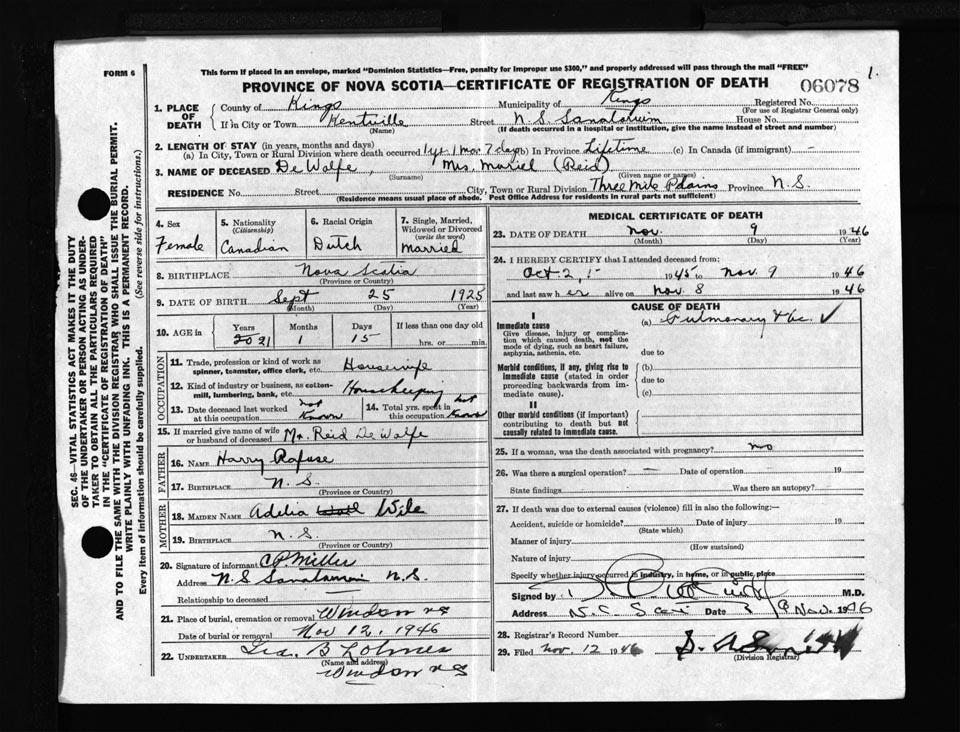 FORM 6
This form if placed in an envelope, marked "Dominion Statistics—Free, penalty for improper use $300," and properly addressed will pass through the mail "FREE"
1.
PROVINCE OF NOVA SCOTIA—CERTIFICATE OF REGISTRATION OF DEATH 06078
1. PLACE OF DEATH { County of Kings Municipality of Kings Registered No.
(For use of Registrar General only)
If in City or Town Kentville Street N.S. Sanatorium House No.
(Name) (If death occurred in a hospital or institution, give the name instead of street and number)
2. LENGTH OF STAY (in years, months and days)
(a) In City, Town or Rural Division where death occurred 1 yr. 1 mo. 7 days (b) In Province Lifetime (c) In Canada (if immigrant) —
3. NAME OF DECEASED De Wolfe, Mrs. Mariel (Reid)
(Surname) (Given name or names)
RESIDENCE No. Street City, Town or Rural Division Three Mile Plains Province N.S.
(Residence means usual place of abode. Post Office Address for residents in rural parts not sufficient)
4. Sex
Female
5. Nationality
(Citizenship)
Canadian
6. Racial Origin
Dutch
7. Single, Married, Widowed or Divorced
(write the word)
Married
8. BIRTHPLACE Nova Scotia
(Province or Country)
9. DATE OF BIRTH Sept 25 1925
(Month) (Day) (Year)
10. AGE in { Years Months Days If less than one day old
20 21 1 15 hrs. or min.
OCCUPATION
11. Trade, profession or kind of work as spinner, teamster, office clerk, etc. Housewife
12. Kind of industry or business, as cotton-mill, lumbering, bank, etc. Housekeeping
13. Date deceased last worked at this occupation not Known
14. Total yrs. spent in this occupation not Known
15. If married give name of wife or husband of deceased } Mr. Reid De Wolfe
FATHER
16. NAME Harry Rafuse
17. BIRTHPLACE N.S.
(Province or Country)
MOTHER
18. MAIDEN NAME Adelia Wile
19. BIRTHPLACE N.S.
(Province or Country)
20. Signature of informant CP Miller
Address N.S Sanatorium N.S.
Relationship to deceased
21. Place of burial, cremation or removal Windsor NS
Date of burial or removal Nov 12, 1946
22. UNDERTAKER Geo. B Lohnes
(Name and address)
Windsor NS
MEDICAL CERTIFICATE OF DEATH
23. DATE OF DEATH Nov. 9 1946
(Month) (Day) (Year)
24. I HEREBY CERTIFY that I attended deceased from:
Oct 2, 1945 to Nov. 9 1946
and last saw h er alive on Nov. 8 1946
CAUSE OF DEATH
I
Immediate cause (a) Pulmonary tbc. ✓
Give disease, injury or complication which caused death, not the mode of dying, such as heart failure, asphyxia, asthenia, etc.
due to
Morbid conditions, if any, giving rise to immediate cause (stated in order proceeding backwards from immediate cause).
(b)
due to
(c)
II
Other morbid conditions (if important) contributing to death but not causally related to immediate cause.
25. If a woman, was the death associated with pregnancy? no
26. Was there a surgical operation? — Date of operation 19
State findings Was there an autopsy?
27. If death was due to external causes (violence) fill in also the following:—
Accident, suicide or homicide? Date of injury 19
(State which)
Manner of injury
(How sustained)
Nature of injury
Specify whether injury occurred in industry, in home, or in public place
Signed by M.D.
Address Date 9 Nov. 1946
28. Registrar's Record Number
29. Filed Nov. 12 1946
(Division Registrar)
SEC. 46—VITAL STATISTICS ACT MAKES IT THE DUTY OF THE UNDERTAKER OR PERSON ACTING AS UNDERTAKER TO OBTAIN ALL THE PARTICULARS REQUIRED IN THE "CERTIFICATE OF REGISTRATION OF DEATH" AND TO FILE THE SAME WITH THE DIVISION REGISTRAR WHO SHALL ISSUE THE BURIAL PERMIT.
WRITE PLAINLY WITH UNFADING INK. THIS IS A PERMANENT RECORD.
Every item of information should be carefully supplied. (See reverse side for instructions.)